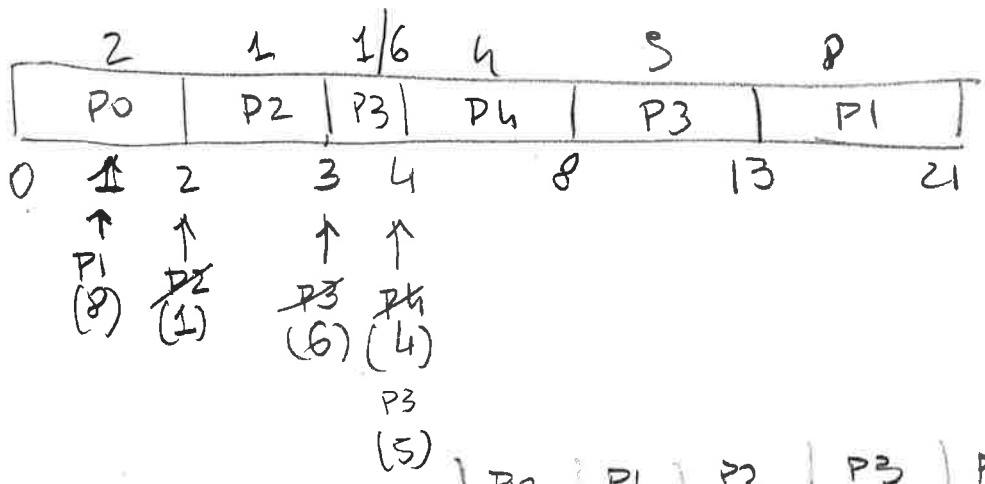 2 1 1/6 4 5 8
P0 P2 P3 P4 P3 P1
0 1 2 3 4 8 13 21
P1 P2 P3 P4
(8) (1) (6) (4)
P3
(5)
P1 P2 P3